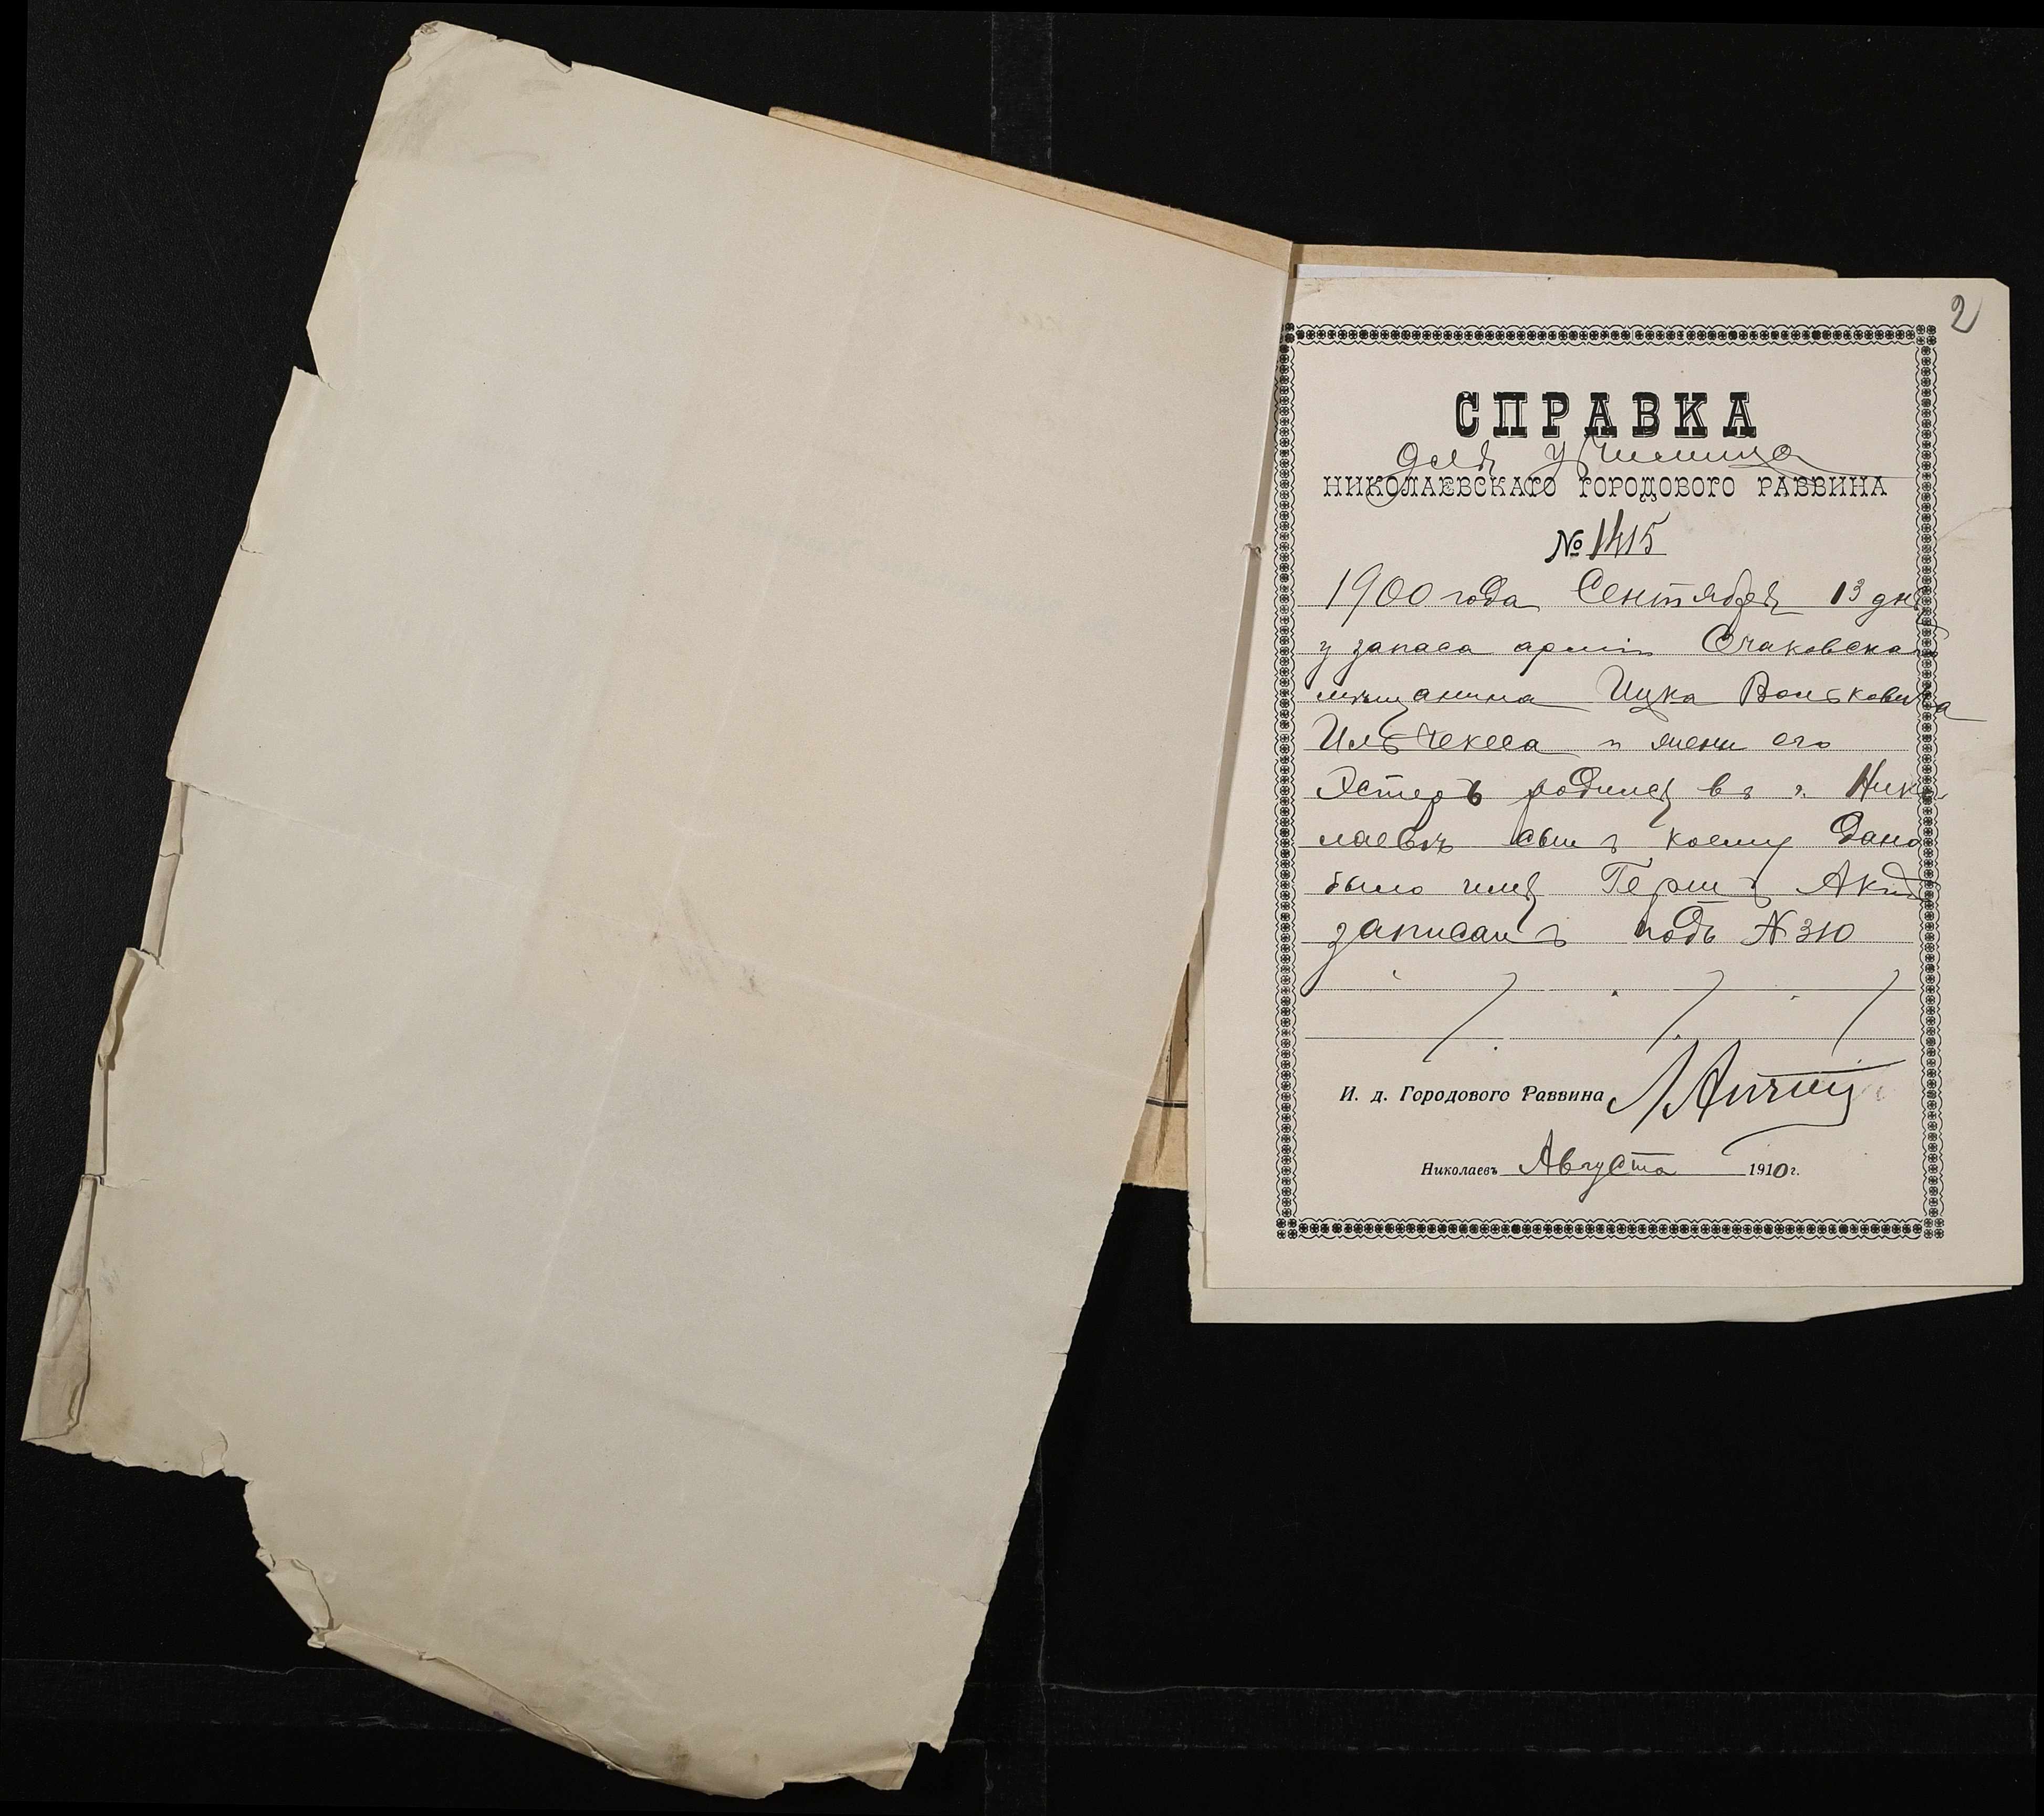 2
СПРАВКА
для училища
НИКОЛАЕВСКАГО ГОРОДОВОГО РАВВИНА
№ 1415
1900 года Сентября 13 дня
у запаса армiи Очаковска
мѣщанина Ицка Вольковича
и жены его
Эстеръ родился въ г. Нико
лаевѣ сынъ коему дано
было имя Гершъ Актъ
записанъ подъ № 310
И. д. Городового Раввина
Николаевъ Августа 1910 г.